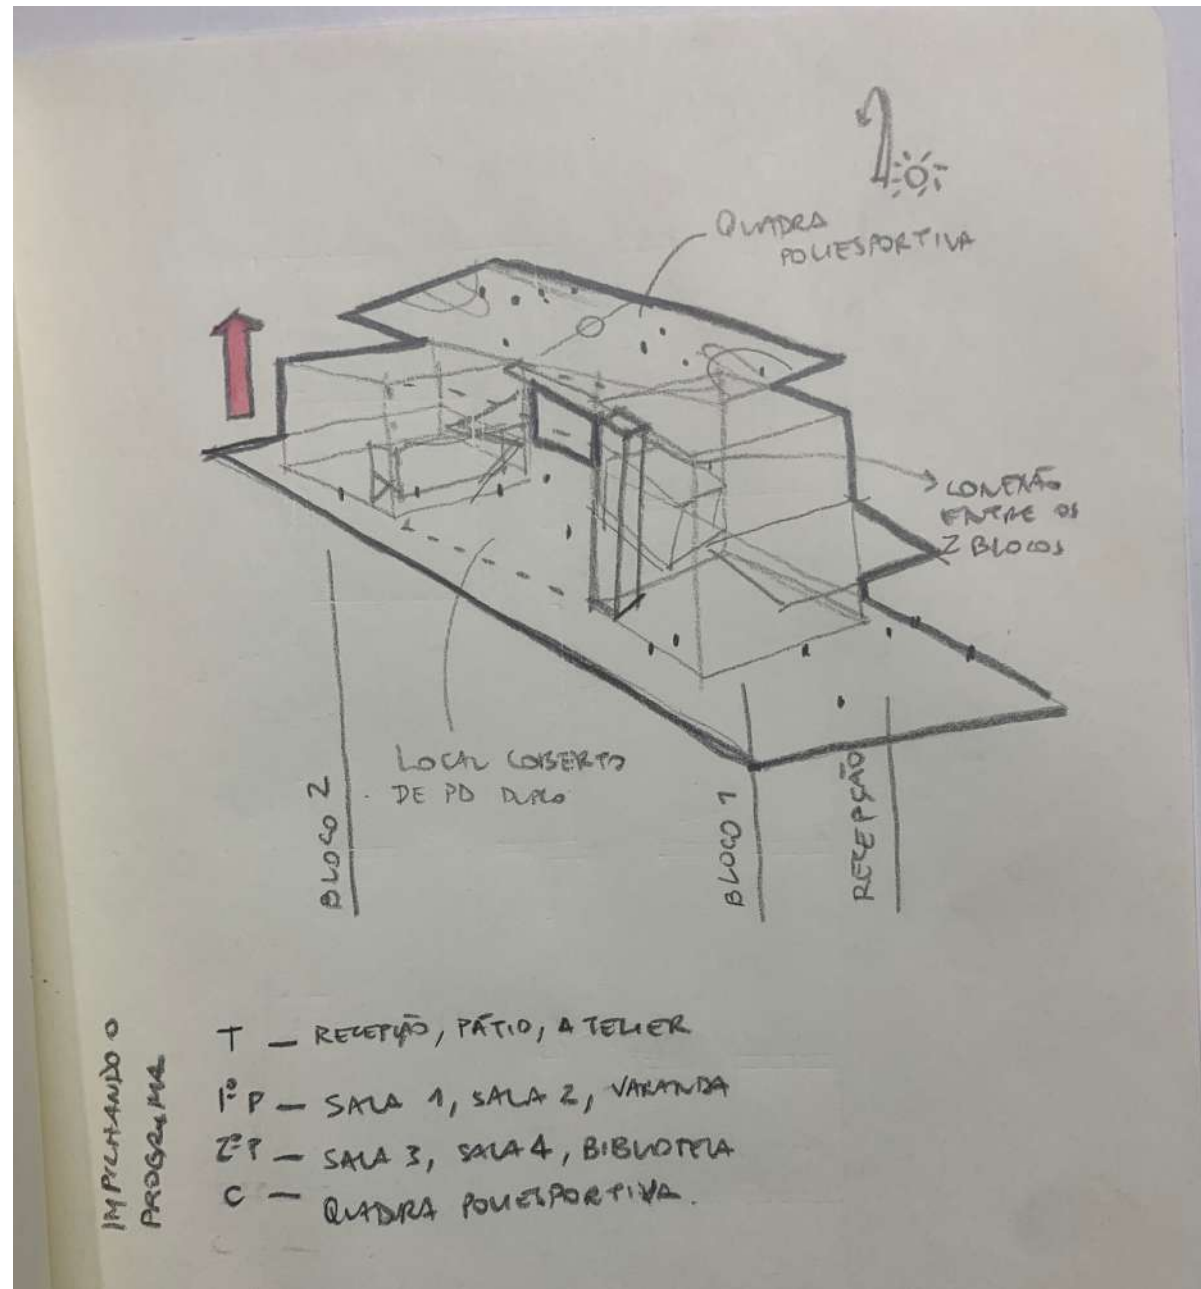 QUADRA
POLIESPORTIVA
CONEXÃO
ENTRE OS
2 BLOCOS
LOCAL COBERTO
DE PD DUPLO
BLOCO 2
BLOCO 1
RECEPÇÃO
EMPILHANDO O
PROGRAMA
T — RECEPÇÃO, PÁTIO, ATELIER
1º P — SALA 1, SALA 2, VARANDA
2º P — SALA 3, SALA 4, BIBLIOTECA
C — QUADRA POLIESPORTIVA.